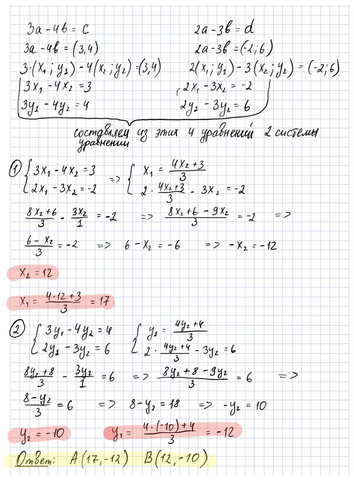 3a - 4b = c    2a - 3b = d
3a - 4b = (3,4)    2a - 3b = (-2;6)
3·(x₁;y₁) - 4(x₂;y₂) = (3,4)    2(x₁;y₁) - 3(x₂;y₂) = (-2;6)
3x₁ - 4x₂ = 3    2x₁ - 3x₂ = -2
3y₁ - 4y₂ = 4    2y₁ - 3y₂ = 6
составляем из этих 4 уравнений 2 системы
уравнений
① {3x₁ - 4x₂ = 3 => {x₁ = (4x₂+3)/3
{2x₁ - 3x₂ = -2    {2·(4x₂+3)/3 - 3x₂ = -2
(8x₂+6)/3 - 3x₂/1 = -2 => (8x₂+6-9x₂)/3 = -2 =>
(6-x₂)/3 = -2 => 6-x₂ = -6 => -x₂ = -12
x₂ = 12
x₁ = (4·12+3)/3 = 17
② {3y₁ - 4y₂ = 4    {y₁ = (4y₂+4)/3
{2y₁ - 3y₂ = 6    {2·(4y₂+4)/3 - 3y₂ = 6
(8y₂+8)/3 - 3y₂/1 = 6 => (8y₂+8-9y₂)/3 = 6 =>
(8-y₂)/3 = 6 => 8-y₂ = 18 => -y₂ = 10
y₂ = -10    y₁ = (4·(-10)+4)/3 = -12
Ответ: A(17,-12) B(12,-10)